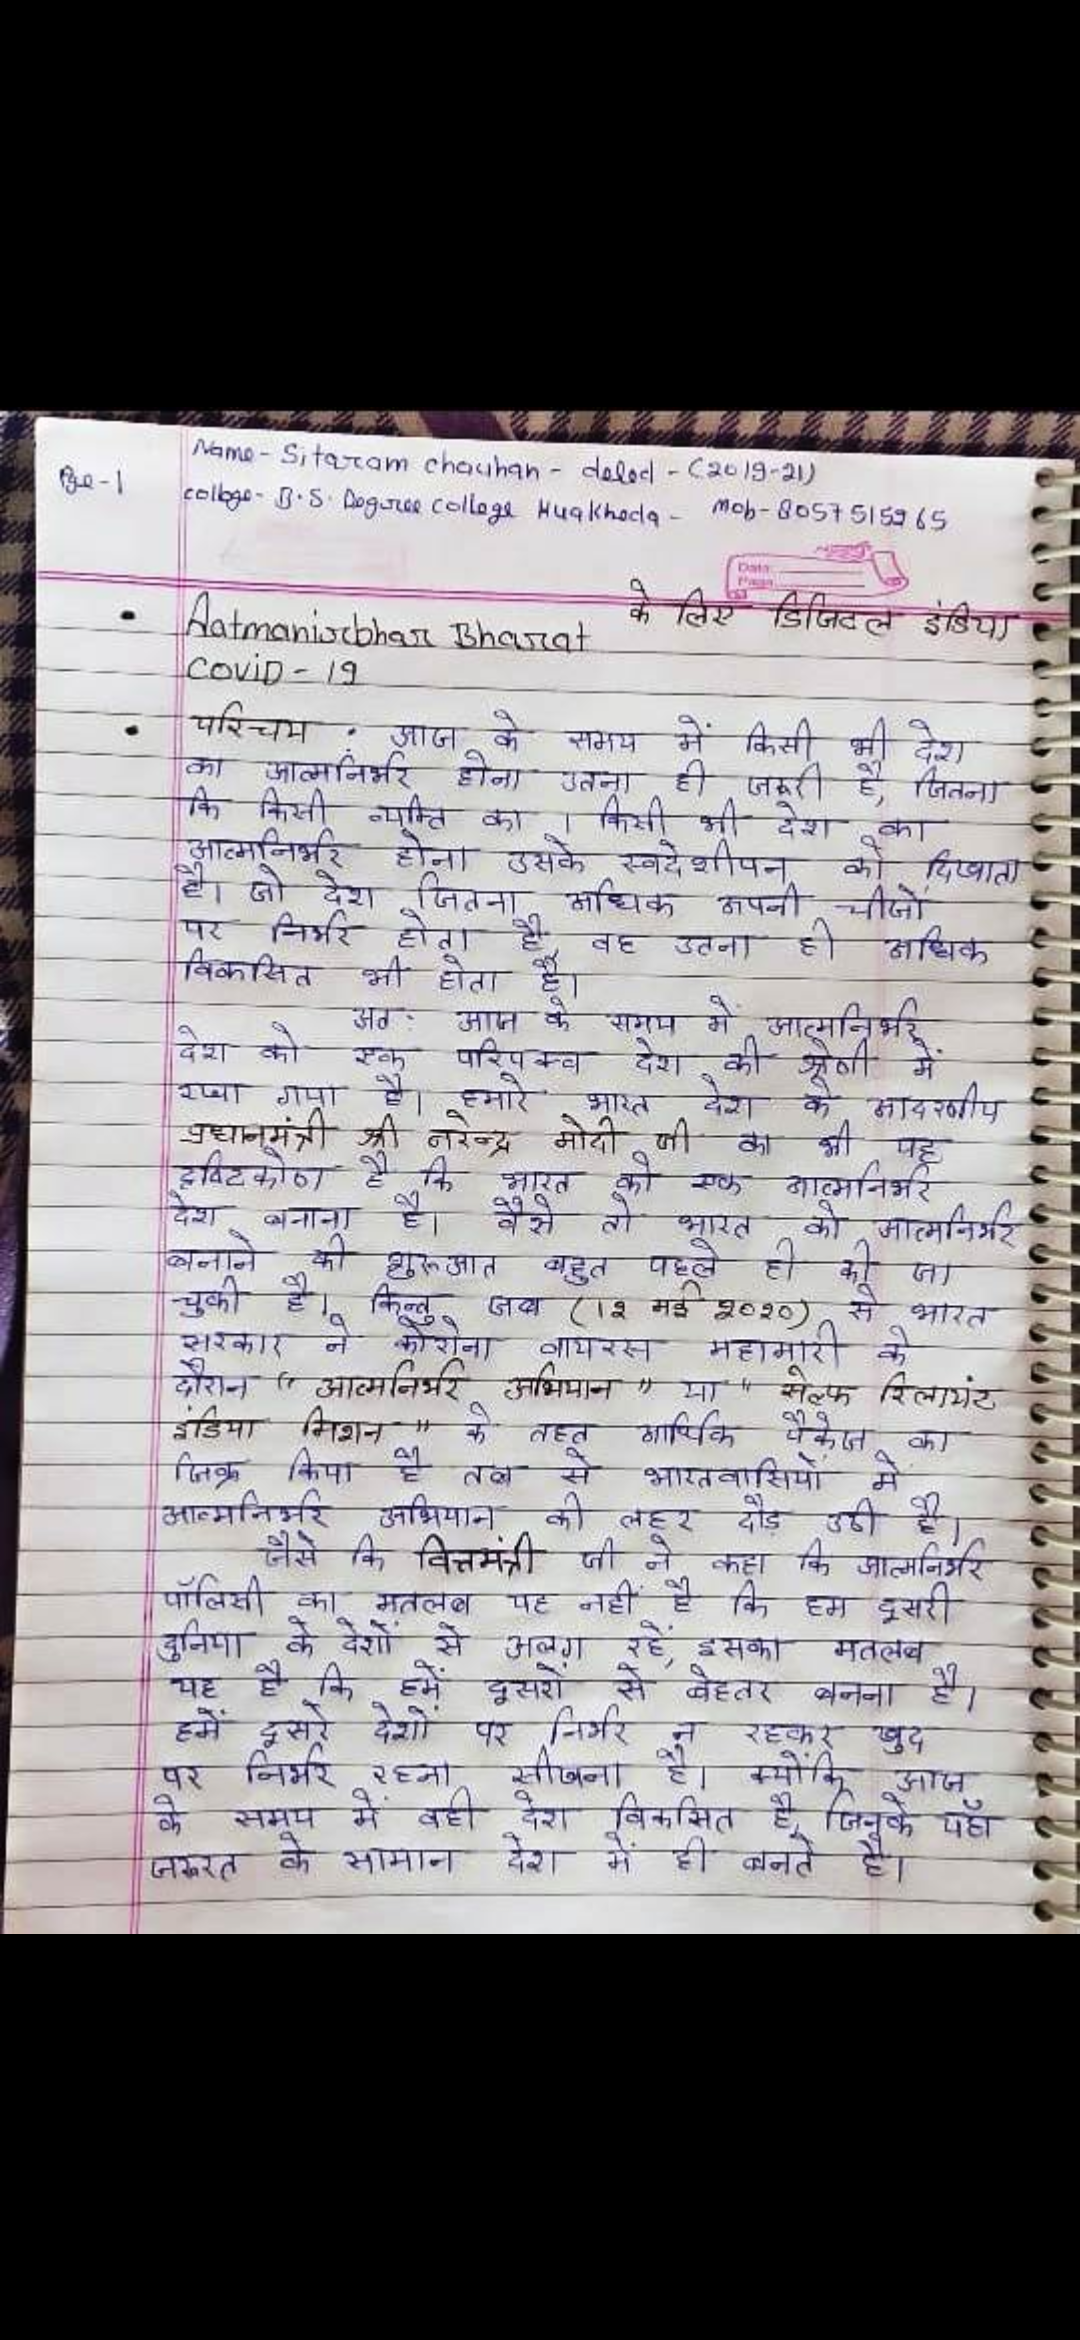 Name - Sitaram chauhan - deled - (2019-21)
Pge-1
college - B.S. Degree college Huakheda - Mob - 8057515265
Date
Page
के लिए डिजिटल इंडिया
Aatmanirbhar Bharat
COVID - 19
परिचय • आज के समय में किसी भी देश
का आत्मनिर्भर होना उतना ही जरूरी है, जितना
कि किसी व्यक्ति का । किसी भी देश का
आत्मनिर्भर होना उसके स्वदेशीपन को दिखाता
है। जो देश जितना अधिक अपनी चीजों
पर निर्भर होता है, वह उतना ही अधिक
विकसित भी होता है।
अतः आज के समय में आत्मनिर्भर
देश को एक परिपक्व देश की श्रेणी में
रखा गया है। हमारे भारत देश के आदरणीय
प्रधानमंत्री श्री नरेन्द्र मोदी जी का भी यह
दृष्टिकोण है कि भारत को एक आत्मनिर्भर
देश बनाना है। वैसे तो भारत को आत्मनिर्भर
बनाने की शुरुआत बहुत पहले ही की जा
चुकी है। किन्तु जब (12 मई 2020) से भारत
सरकार ने कोरोना वायरस महामारी के
दौरान "आत्मनिर्भर अभियान" या "सेल्फ रिलायंट
इंडिया मिशन" के तहत आर्थिक पैकेज का
जिक्र किया है तब से भारतवासियों में
आत्मनिर्भर अभियान की लहर दौड़ उठी है।
जैसे कि वित्तमंत्री जी ने कहा कि आत्मनिर्भर
पॉलिसी का मतलब यह नहीं है कि हम दूसरी
दुनिया के देशों से अलग रहें, इसका मतलब
यह है कि हमें दूसरों से बेहतर बनना है।
हमें दूसरे देशों पर निर्भर न रहकर खुद
पर निर्भर रहना सीखना है। क्योंकि आज
के समय में वही देश विकसित है, जिनके यहाँ
जरूरत के सामान देश में ही बनते है।